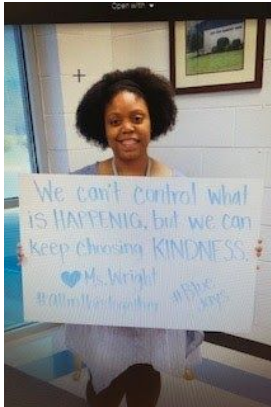 Open with
We can't control what
is HAPPENIG, but we can
keep choosing KINDNESS.
Ms. Wright
#Blue
Jays